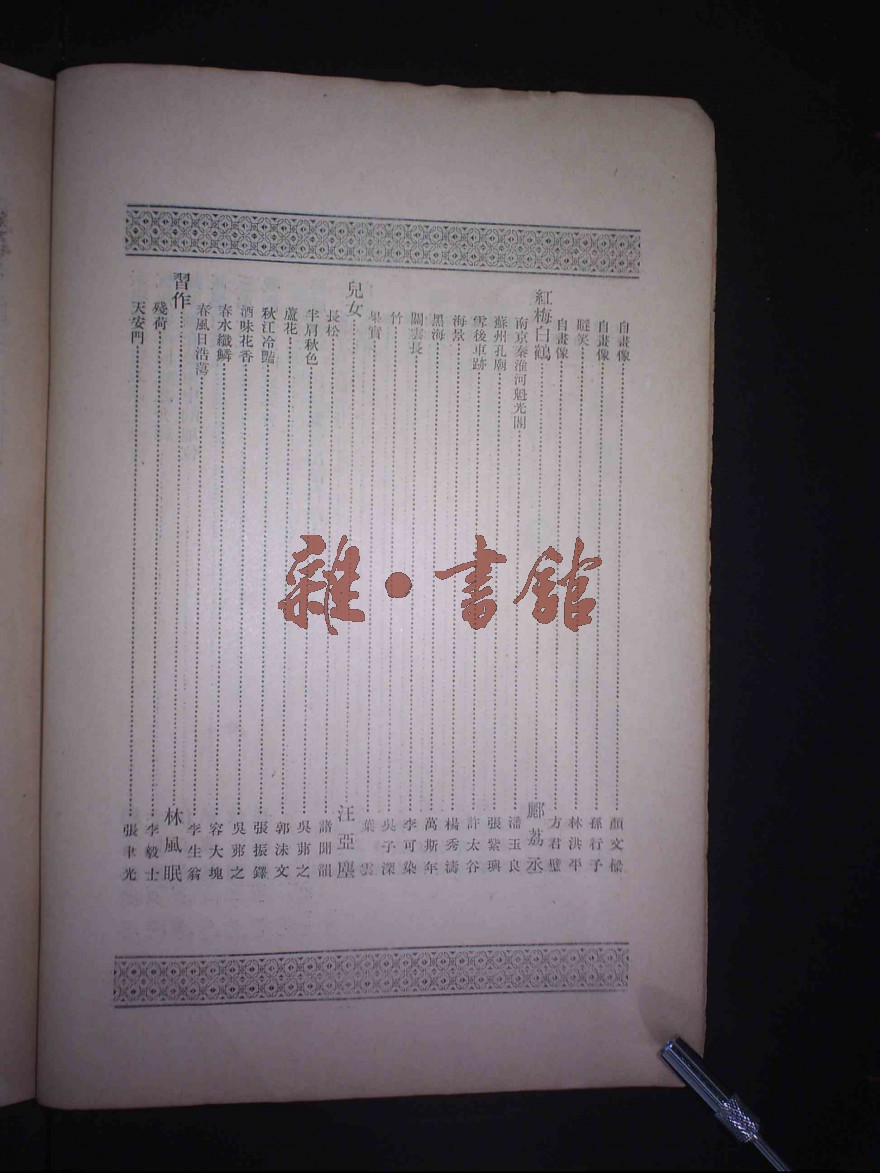 自畫像……顏文樑
自畫像……孫行予
睇笑……林洪平
自畫像……方君璧
紅梅白鶴……鄺荔丞
南京秦淮河魁光閣……潘玉良
蘇州孔廟……張紫璵
雪後車跡……許太谷
海景……楊秀濤
黑海……萬斯年
關雲長……李可染
竹……吳子深
果實……葉雲
兒女……汪亞塵
長松……諸聞韻
半肩秋色……吳茀之
蘆花……郭沫文
秋江冷豔……張振鐸
酒味花香……吳茀之
春水纖鱗……容大塊
春風日浩蕩……李生翁
習作……林風眠
殘荷……李毅士
天安門……張聿光
雜·書館